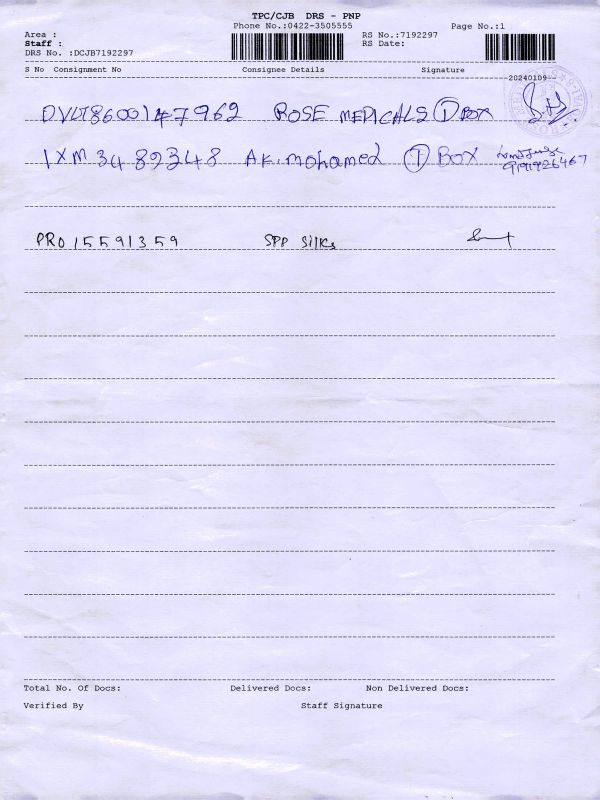 TPC/CJB DRS - PNP
Phone No.:0422-3505555 Page No.:1
Area : RS No.:7192297
Staff : RS Date:
DRS No. :DCJB7192297
S No Consignment No Consignee Details Signature
20240109
DVLT8600147962 ROSE MEDICALS 1 BOX
IXM 3489348 A.K. Mohamed 1 BOX
PRO15591359 SPP Silks
Total No. Of Docs: Delivered Docs: Non Delivered Docs:
Verified By Staff Signature